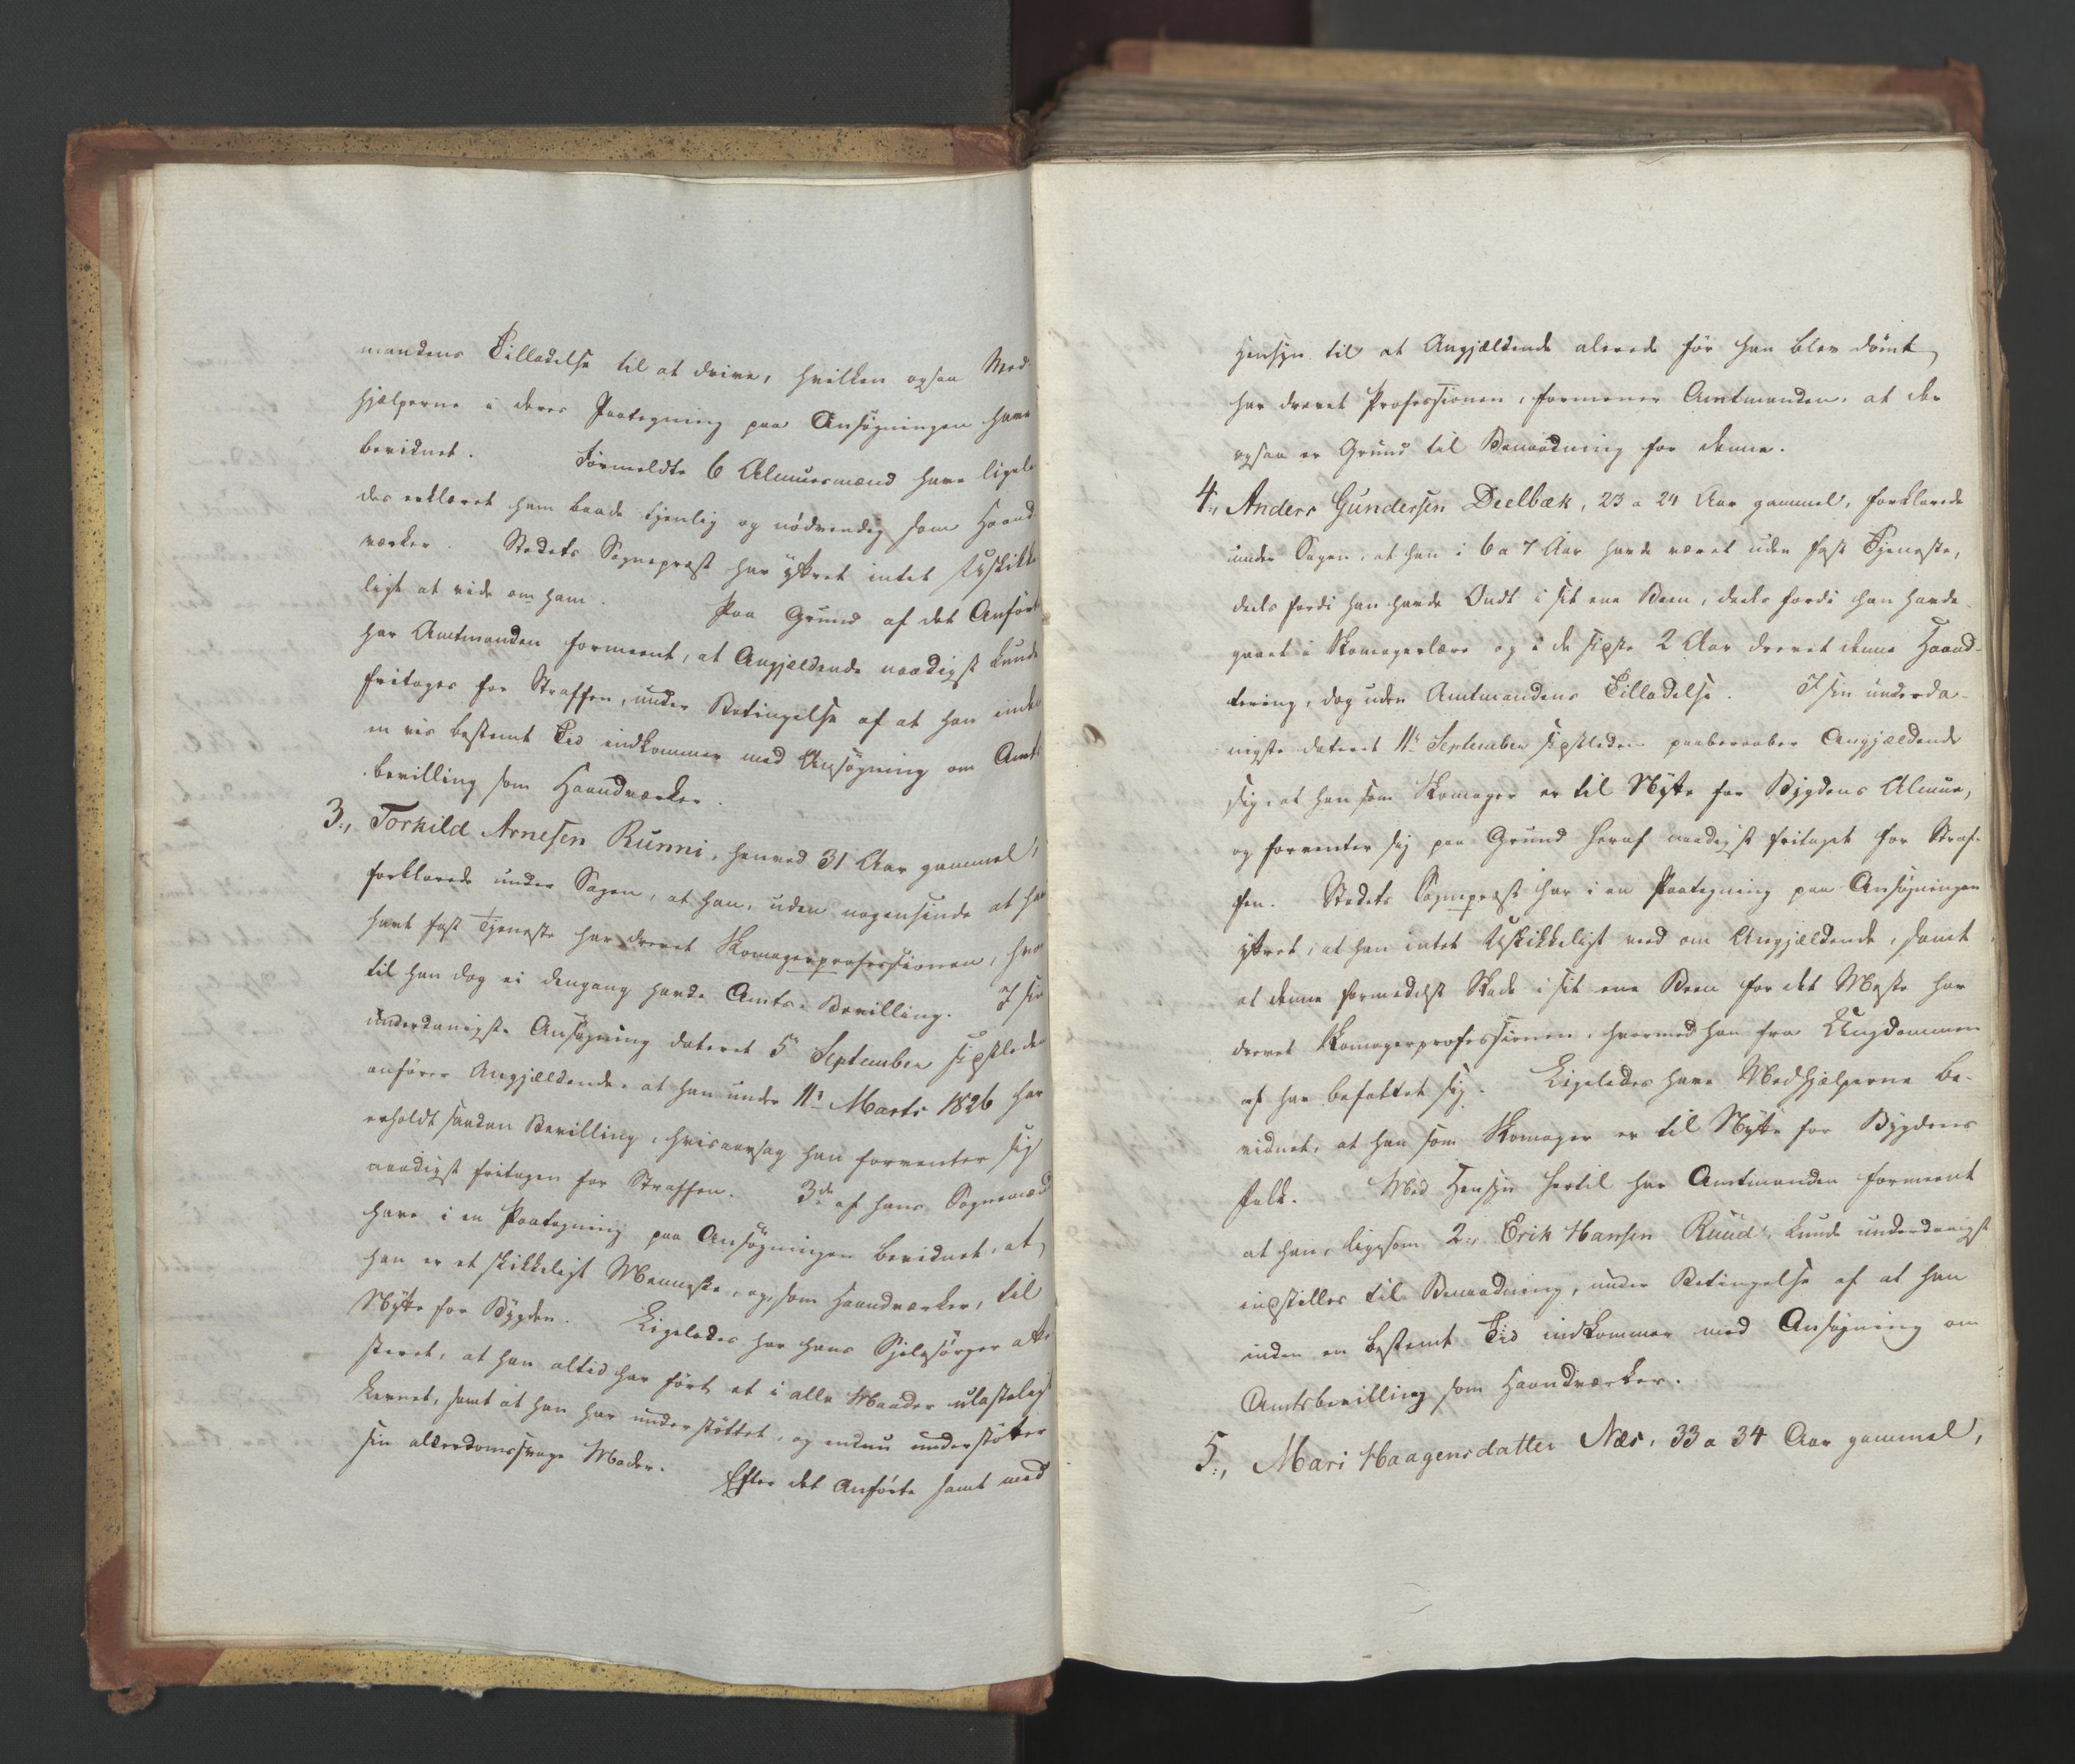 mandens Tilladelse til at drive, hvilken ogsaa Med
hjælperne i deres Paategning paa Ansøgningen have
bevidnet. Førmeldte 6 Almuesmænd have ligele
des erklæret ham baade tjenlig og nødvendig som Haand
værker. Stedets Sognepræst har yttret intet Uskikke
ligt at vide om ham. Paa Grund af det Anført
har Amtmanden formeent, at Angjældende naadigst kunde
fritages for Straffen, under Betingelse af at han inden
en vis bestemt Tid indkommer med Ansøgning om Amts
bevilling som Haandværker.
3., Torkild Arnesen Runni, henved 31 Aar gammel,
forklarede under Sagen, at han, uden nogensinde at have
havt fast Tjeneste har drevet Skomagerprofessionen, hvor
til han dog ei dengang havde Amts-Bevilling. I sin
underdanigste Ansøgning dateret 5te September sidstleden
anfører Angjældende at han under 11te Marts 1826 har
erholdt saadan Bevilling, hvisaarsag han forventer sig
naadigst fritagen for Straffen. 3de af hans Sognemænd
have i en Paategning paa Ansøgningen bevidnet, at
han er et skikkeligt Menneske, og, som Haandværker, til
Nytte for Bygden. Ligeledes har hans Sjelesørger atte
steret, at han altid har ført et i alle Maader ulasteligt
Levnet, samt at han har understøttet, og endnu understøtter
sin alderdomssvage Moder. Efter det Anførte samt med
Hensyn til at Angjældende allerede før han blev dømt
har drevet Professionen, formener Amtmanden, at der
ogsaa er Grund til Benaadning for denne.
4., Anders Gundersen Deelbæk, 23 a 24 Aar gammel, forklarede
under Sagen, at han i 6 a 7 Aar havde været uden fast Tjeneste,
deels fordi han havde Ondt i sit ene Been, deels fordi han havde
gaaet i Skomagerlære og i de sidste 2 Aar drevet denne Haand-
tering, dog uden Amtmandens Tilladelse. I sin underda-
nigste dateret 11te September sidstleden paaberaaber Angjældende
sig, at han som Skomager er til Nytte for Bygdens Almue,
og forventer sig paa Grund heraf naadigst fritaget for Straf-
fen. Stedets Sognepræst har i en Paategning paa Ansøgningen
yttret, at han intet Uskikkeligt veed om Angjældende, samt
at denne formedelst Skade i sit ene Been for det Meste har
drevet Skomagerprofessionen, hvormed han fra Ungdommen
af har befattet sig. Ligeledes have Medhjælperne be-
vidnet, at han som Skomager er til Nytte for Bygdens
Folk. Med Hensyn hertil har Amtmanden formeent
at han, ligesom 2., Erik Hansen Ruud, kunde underdanigst
indstilles til Benaadning, under Betingelse af at han
inden en bestemt Tid indkommer med Ansøgning om
Amtsbevilling som Haandværker.
5., Mari Haagensdatter Næs, 33 a 34 Aar gammel,